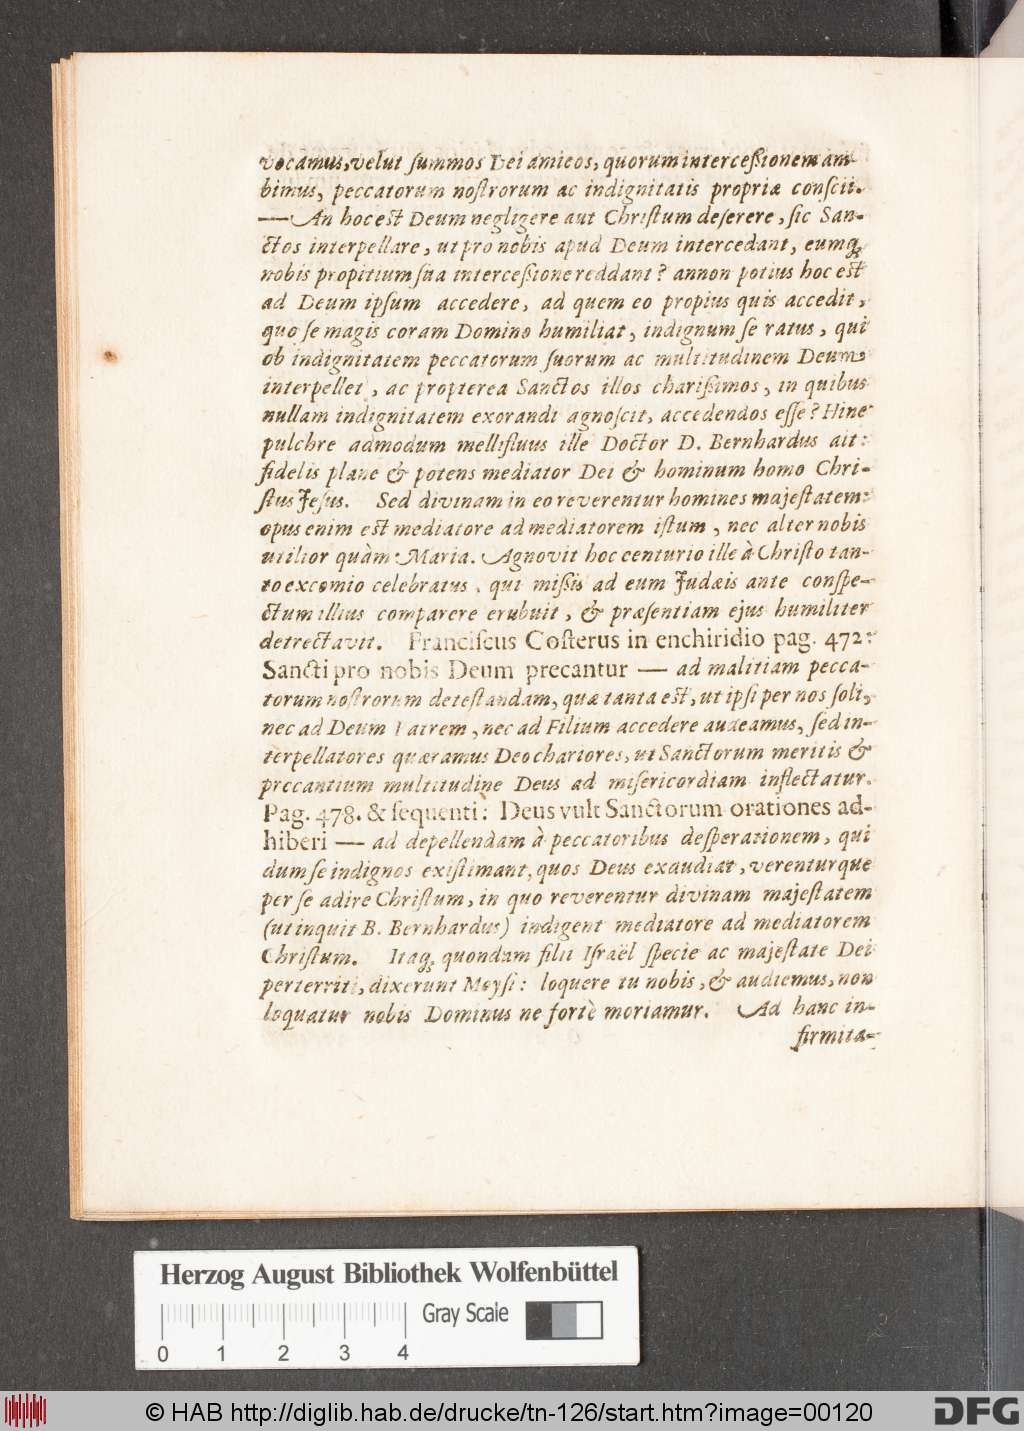 vocamus, velut ſummos Dei amicos, quorum interceßionem am-
bimus, peccatorum noſtrorum ac indignitatis propriæ conſcii.
— An hoc est Deum negligere aut Chriſtum deſerere, ſic San-
ctos interpellare, ut pro nobis apud Deum intercedant, eumq;
nobis propitium ſua interceßione reddant? annon potius hoc est
ad Deum ipſum accedere, ad quem eo propius quis accedit,
quo ſe magis coram Domino humiliat, indignum ſe ratus, qui
ob indignitatem peccatorum ſuorum ac multitudinem Deum
interpellet, ac propterea Sanctos illos charißimos, in quibus
nullam indignitatem exorandi agnoſcit, accedendos eſſe? Hinc
pulchre admodum mellifluus ille Doctor D. Bernhardus ait:
fidelis plane & potens mediator Dei & hominum homo Chri-
ſtus Jeſus. Sed divinam in eo reverentur homines majeſtatem:
opus enim est mediatore ad mediatorem iſtum, nec alter nobis
utilior quàm Maria. Agnovit hoc centurio ille à Chriſto tan-
to excomio celebratus, qui mißis ad eum Judæis ante conſpe-
ctum illius comparere erubuit, & præſentiam ejus humiliter
detrectavit. Franciſcus Coſterus in enchiridio pag. 472:
Sancti pro nobis Deum precantur — ad malitiam pecca-
torum noſtrorum deteſtandam, quæ tanta eſt, ut ipſi per nos ſoli,
nec ad Deum Patrem, nec ad Filium accedere audeamus, ſed in-
terpellatores quæramus Deo chariores, ut Sanctorum meritis &
precantium multitudine Deus ad miſericordiam inflectatur.
Pag. 478. & ſequenti: Deus vult Sanctorum orationes ad-
hiberi — ad depellendam à peccatoribus deſperationem, qui
dum ſe indignos exiſtimant, quos Deus exaudiat, verenturque
per ſe adire Chriſtum, in quo reverentur divinam majeſtatem
(ut inquit B. Bernhardus) indigent mediatore ad mediatorem
Chriſtum. Itaq; quondam filii Iſraël ſpecie ac majeſtate Dei
perterriti, dixerunt Moyſi: loquere tu nobis, & audiemus, non
loquatur nobis Dominus ne fortè moriamur. Ad hanc in-
firmita-
Herzog August Bibliothek Wolfenbüttel
Gray Scale
0 1 2 3 4
© HAB http://diglib.hab.de/drucke/tn-126/start.htm?image=00120
DFG